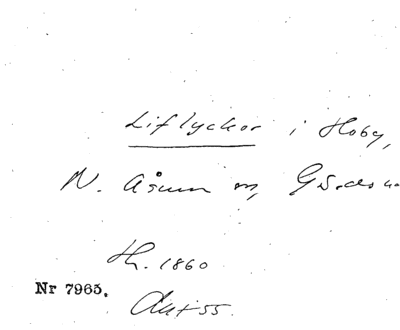 Liflyckor i Hoby,
N. Åsum sn, Gärds h.
Th. 1860
Nr 7965.
Ant 55.